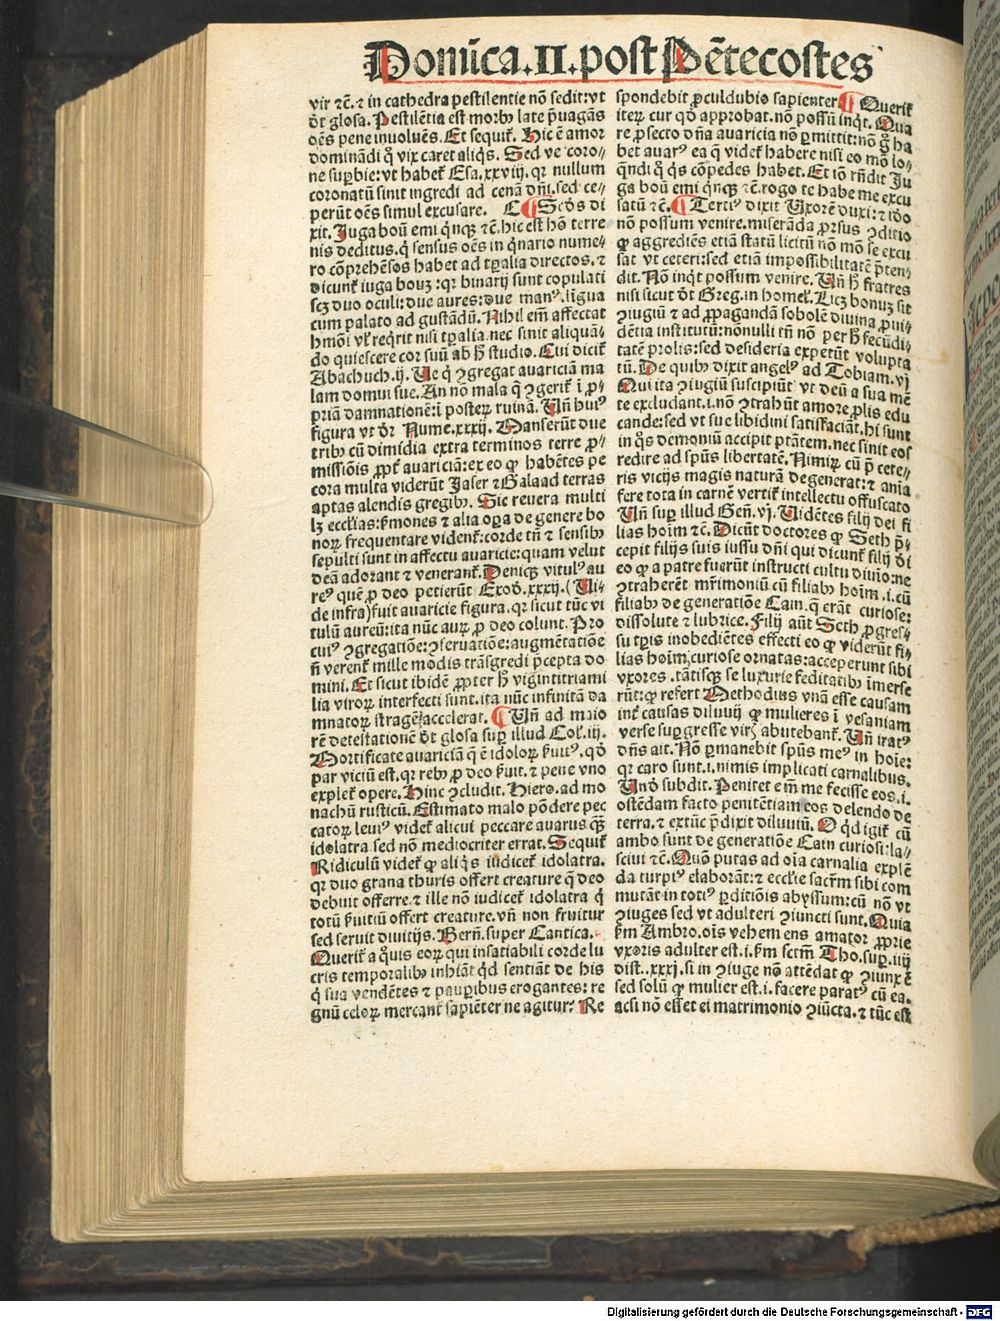 Domīica.II.post Pētecostes
vir ⁊c̄.⁊ in cathedra pestilentie nō sedit:vt
dt̄ glosa. Pestilētia est morbꝰ late ꝑuagās
oēs pene inuoluēs. Et sequit̄. Hic ē amor
dominādi q̄ vix caret aliqͥs. Sed ve coro⸗
ne suꝑbie:vt habet̄ Esa.xxviij.qꝛ nullum
coronatū sinit ingredi ad cenā dn̄i.sed ce⸗
perūt oēs simul excusare. ¶ Scd̄s di
xit. Juga boū emi qͥnqꝫ ⁊c̄.hic est hō terre
nis deditus.qͥ sensus oēs in qͥnario nume⸗
ro cōprehēsos habet ad tꝑalia directos.⁊
dicunt̄ iuga bouꝫ:qꝛ binarij sunt copulati
scꝫ duo oculi:due aures:due manꝰ.ligua
cum palato ad gustādū. Nihil em̄ affectat
hmōi vl̄ reqͥrit nisi tꝑalia.nec sinit aliquā⸗
do quiescere cor suū ab h̄ studio. Cui dicit̄
Abachuch.ij. Ue qͥ ꝯgregat auariciā ma
lam domui sue. An nō mala qͥ ꝯgerit̄ ī ꝓ⸗
priā damnationē:ī posteꝝ ruinā. Un̄ huiꝰ
figura vt dr̄ Nume.xxxij. Manserūt due
tribꝰ cū dimidia extra terminos terre ꝓ⸗
missiōis ꝓpt̄ auariciā:ex eo ꝙ habētes pe
cora multa viderūt Jaser ⁊ Galaad terras
aptas alendis gregibꝰ. Sic reuera multi
lꝫ eccl̄ias:ẜmones ⁊ alia oꝑa de genere bo
noꝝ frequentare vident̄:corde tn̄ ⁊ sensibꝰ
sepulti sunt in affectu auaricie:quam velut
deā adorant ⁊ venerant̄. Deniqꝫ vitulꝰ au
reꝰ quē ꝓ deo petierūt Exod̄.xxxij.(Ui⸗
de infra)fuit auaricie figura.qꝛ sicut tūc vi
tulū aureū:ita nūc auꝝ ꝓ deo colunt. Pro
cuiꝰ ꝯgregatiōe:ꝯseruatiōe:augmētatiōe
n̄ verent̄ mille modis trāsgredi p̄cepta do
mini. Et sicut ibidē ꝓpter h̄ vigintitriami
lia viroꝝ interfecti sunt.ita nūc infinitā da
mnatoꝝ stragē accelerat. ¶ Un̄ ad maio
rē detestationē dt̄ glosa suꝑ illud Col̄.iij.
Mortificate auariciā q̄ ē idoloꝝ ẜuitꝰ.qd̄
par viciū est.qꝛ rebꝰ ꝓ deo ẜuit.⁊ pene vno
explet̄ opere. Hinc ꝯcludit. Hiero.ad mo
nachū rusticū. Estimato malo pōdere pec
catoꝝ leuiꝰ videt̄ alicui peccare auarus qͣꝫ
idolatra sed nō mediocriter errat. Sequit̄
Ridiculū videt̄ ꝙ aliqͥs iudicet̄ idolatra.
qꝛ duo grana thuris offert creature q̄ deo
debuit offerre.⁊ ille nō iudicet̄ idolatra qͥ
totū ẜuitiū offert creature.vn̄ non fruitur
sed seruit diuitijs. Bern̄.super Cantica.
Querit̄ a qͥuis eoꝝ qui insatiabili corde lu
cris temporalibꝰ inhiāt qd̄ sentiāt de his
qͥ sua vendētes ⁊ pauꝑibus erogantes: re
gnū celoꝝ mercant̄ sapiēter ne agitur? Re
spondebit ꝓculdubio sapienter ¶ Querit̄
iteꝝ cur qd̄ approbat.nō possū inqͥt. Qua
re ꝓsecto dn̄a auaricia nō ꝑmittit:nō gͦ ha
bet auarꝰ ea q̄ videt̄ habere nisi eo mō lo⸗
qͣndi qͦ qͥs cōpedes habet. Et iō rn̄dit Ju
ga boū emi qͥnqꝫ ⁊c̄.rogo te habe me excu
satū ⁊c̄. ¶ Tertiꝰ dixit Uxorē duxi:⁊ iō
nō possum venire.miserāda ꝓrsus ꝯditio
ꝙ aggrediēs etiā statū licitū nō mō se excu
sat vt ceteri:sed etiā impossibilitatē p̄ten⸗
dit. Nō inqͥt possum venire. Un̄ h̄ fratres
nisi sicut dt̄ Greg.in homel̄. Licꝫ bonuꝫ sit
ꝯiugiū ⁊ ad ꝓpagandā sobolē diuina ꝓui⸗
dētia institutū:nōnulli tn̄ nō per h̄ fecūdi⸗
tatē prolis:sed desideria expetūt volupta
tū. De quibꝰ dixit angelꝰ ad Tobiam.vj
Qui ita ꝯiugiū suscipiūt vt deū a sua mē
te excludant.i.nō ꝯtrahūt amore ꝓlis edu
cande:sed vt sue libidini satisfaciāt.hi sunt
in qͦs demoniū accipit ptātem.nec sinit eos
redire ad spūs libertatē. Nimiꝝ cū p̄ cete⸗
ris vicijs magis naturā degenerat:⁊ anīa
fere tota in carnē vertit̄ intellectu offuscato
Un̄ suꝑ illud Gen̄.vj. Uidētes filij dei fi
lias hoīm ⁊c̄. Dicūt doctores ꝙ Seth p̄⸗
cepit filijs suis iussu dn̄i qui dicunt̄ filij dī
eo ꝙ a patre fuerūt instructi cultu diuīo:ne
ꝯtraherēt mr̄imoniū cū filiabꝰ hoīm.i.cū
filiabꝰ de generatiōe Cain.q̄ erāt curiose:
dissolute ⁊ lubrice. Filij aūt Seth ꝓgres⸗
su tꝑis inobediētes effecti eo ꝙ viderūt fi⸗
lias hoīm curiose ornatas:acceperunt sibi
vxores.tātisqꝫ se luxurie feditatibꝰ imerse
rūt:ꝙ refert Methodius vnā esse causam
int̄ causas diluuij ꝙ mulieres ī vesaniam
verse suꝑgresse viris abutebant̄. Un̄ iratꝰ
dn̄s ait. Nō ꝑmanebit spūs meꝰ in hoīe:
qꝛ caro sunt.i.nimis implicati carnalibus.
Un̄ subdit. Penitet em̄ me fecisse eos.i.
ostēdam facto penitētiam eos delendo de
terra.⁊ extūc p̄dixit diluuiū. O qd̄ igit̄ cū
ambo sunt de generatiōe Cain curiosi:la⸗
sciui ⁊c̄. Quō putas ad oīa carnalia explē
da turpiꝰ elaborāt:⁊ eccl̄ie sacr̄m sibi com
mutāt in totiꝰ ꝑditiōis abyssum:cū nō vt
ꝯiuges sed vt adulteri ꝯiuncti sunt. Quia
ẜm Ambro.oīs vehemens amator ꝓprie
vxoris adulter est.i.ẜm sctm̄ Tho.suꝑ.iiij
dist..xxxj.si in ꝯiuge nō attēdat ꝙ ꝯiunx ē
sed solū ꝙ mulier est.i.facere paratꝰ cū ea.
acsi nō esset ei matrimonio ꝯiūcta.⁊ tūc est
Digitalisierung gefördert durch die Deutsche Forschungsgemeinschaft - DFG